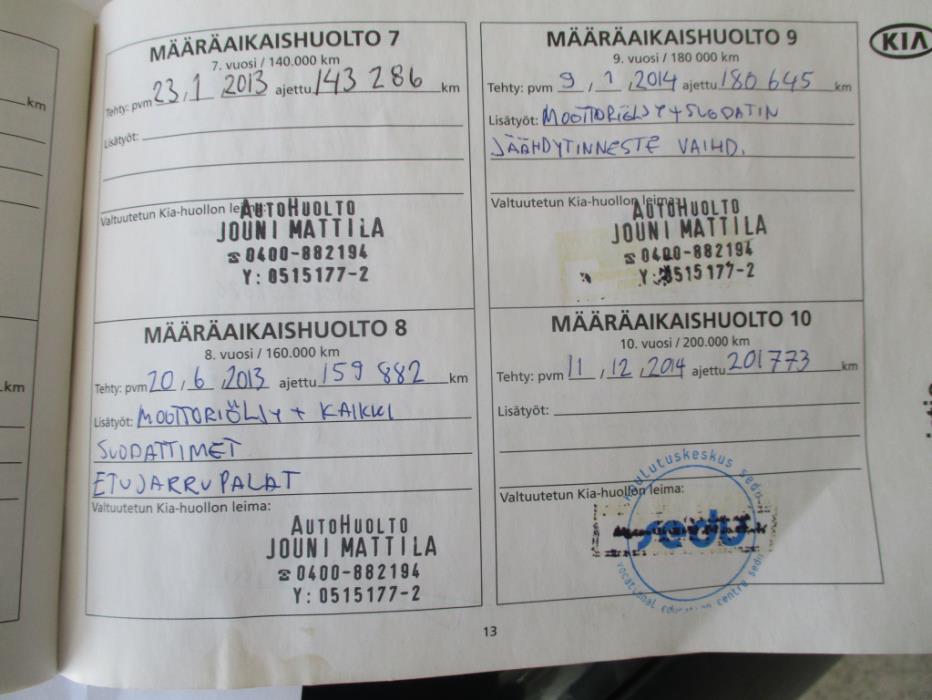 km
km
MÄÄRÄAIKAISHUOLTO 7
7. vuosi / 140.000 km
Tehty: pvm 23, 1 2013 ajettu 143 286 km
Lisätyöt:
Valtuutetun Kia-huollon leima:
AUTOHUOLTO
JOUNI MATTILA
☎ 0400-882194
Y: 0515177-2
MÄÄRÄAIKAISHUOLTO 8
8. vuosi / 160.000 km
Tehty: pvm 20, 6, 2013 ajettu 159 882 km
Lisätyöt: MOOTTORIÖLJY + KAIKKI
SUODATTIMET
ETUJARRUPALAT
Valtuutetun Kia-huollon leima:
AUTOHUOLTO
JOUNI MATTILA
☎ 0400-882194
Y: 0515177-2
MÄÄRÄAIKAISHUOLTO 9
9. vuosi / 180 000 km
Tehty: pvm 9, 1, 2014 ajettu 180 645 km
Lisätyöt: MOOTTORIÖLJY + SUODATIN
JÄÄHDYTINNESTE VAIHD.
Valtuutetun Kia-huollon leima:
AUTOHUOLTO
JOUNI MATTILA
☎ 0400-882194
Y: 0515177-2
MÄÄRÄAIKAISHUOLTO 10
10. vuosi / 200.000 km
Tehty: pvm 11, 12, 2014 ajettu 201773 km
Lisätyöt:
Valtuutetun Kia-huollon leima:
koulutuskeskus sedu
sedu
vocational education centre sedu
13
KIA